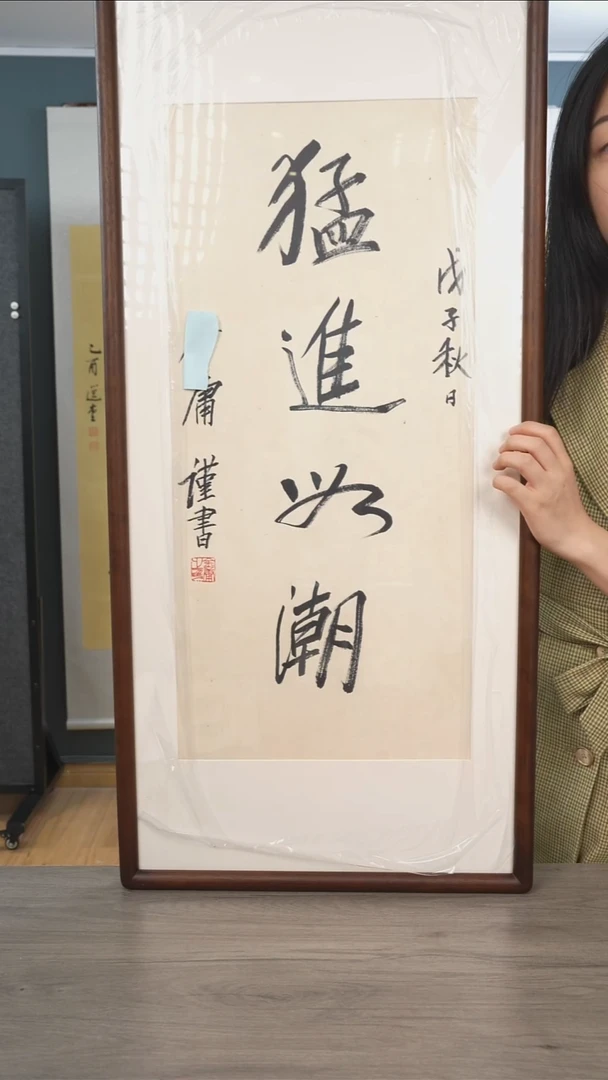 戊子秋日
猛進如潮
庸 謹書
乙酉 選堂